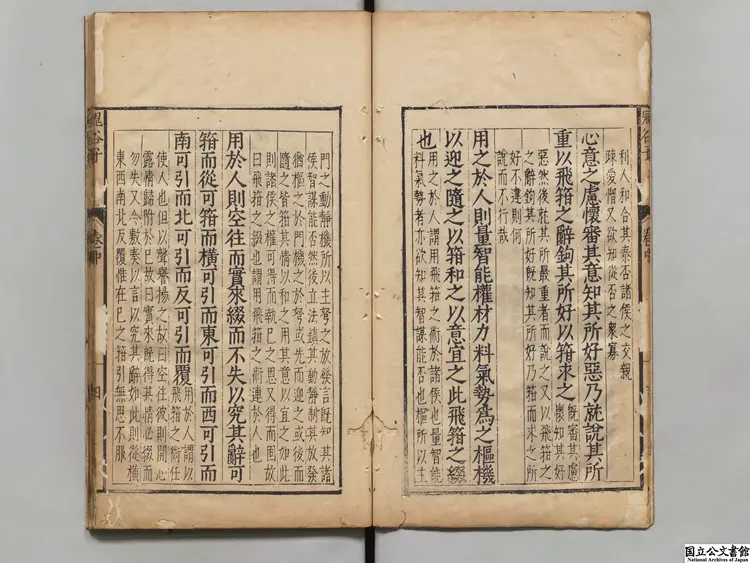 鬼谷子
卷中
利人和合其泰否諸侯之交親
疎愛憎又欲知從否之衆寡
心意之慮懷審其意知其所好惡乃就說其所
重以飛箝之辭鉤其所好以箝求之
旣審其慮
懷知其好
惡然後就其所嚴重者而說之又以飛箝
之辭鉤其所好旣知其所好乃箝而求之所
好不違則何
說而不行哉
用之於人則量智能權材力料氣勢爲之樞機
以迎之隨之以箝和之以意宜之此飛箝之綴
也
用之於人謂用飛箝之術於諸侯也量智能
料氣勢者亦欲知其智謀能否也樞所以主
門之動靜機所以主弩之放發言旣知其諸
侯智謀能否然後立法鎮其動靜制其放發
猶樞之於門機之於弩或先而迎之或後而
隨之皆箝其情以和之用其意以宜之如此
則諸侯之權可得而執巳之恩又得而固故
曰飛箝之綴也謂用飛箝之術連於人也
用於人則空往而實來綴而不失以究其辭可
箝而從可箝而橫可引而東可引而西可引而
南可引而北可引而反可引而覆
用於人謂以
飛箝之術任
使人也但以聲譽揚之故曰空往彼則開心
露情歸附於巳故曰實來旣得其情必綴而
勿失又令敷奏以言以究其辭如此則從橫
東西南北反覆惟在巳之箝引無思不服
鬼谷子
卷中
四
国立公文書館
National Archives of Japan